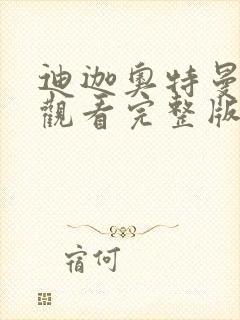 迪迦奥特曼
觀看完整版
宿何